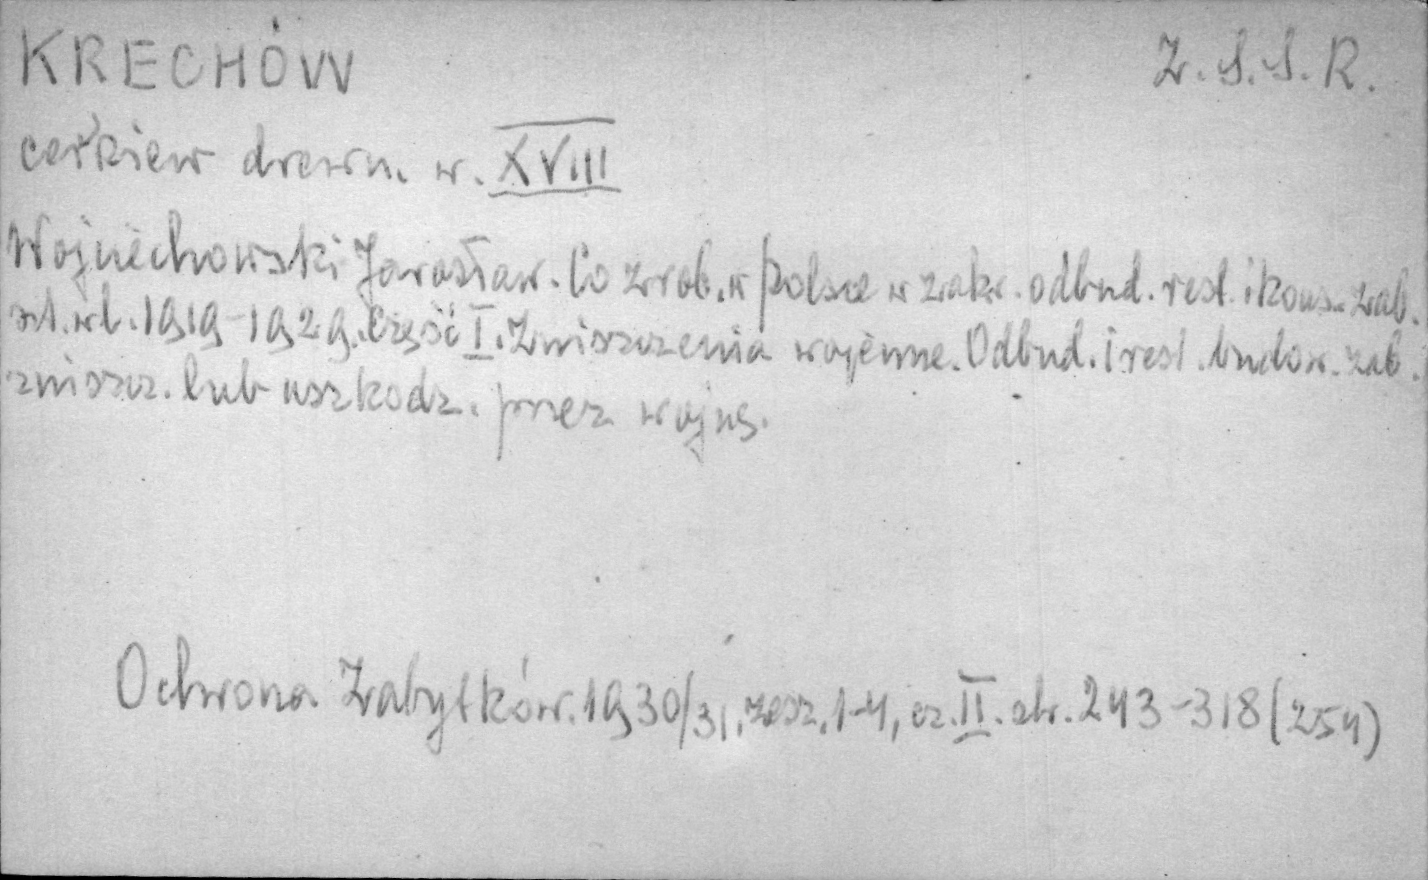 KRECHÓW
Z. S. S. R.
cerkiew drewn. w. XVIII
Wojciechowski Jarosław. Co zrob. w Polsce w zakr. odbud. rest. i kons. zab.
szt. w l. 1919-1929. Część I. Zniszczenia wojenne. Odbud. i rest. budow. zab.
zniszcz. lub uszkodz. przez wojnę.
Ochrona Zabytków. 1930/31, zesz. 1-4, cz. II. str. 243-318 (254)